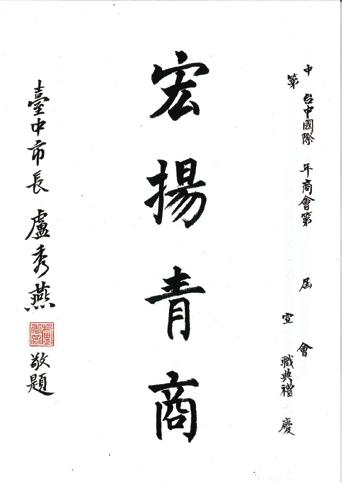 中 台中國際 年商會第 屆 會
第 宣 職典禮 慶
宏揚青商
臺中市長 盧秀燕 敬題